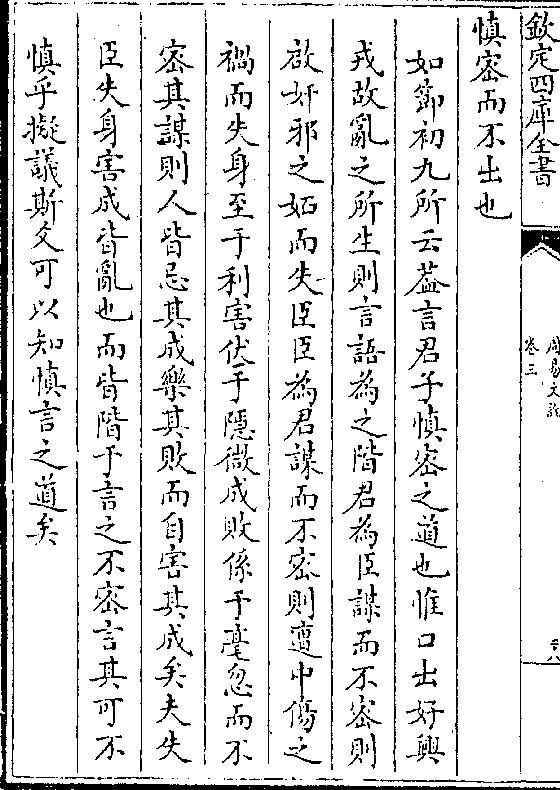 欽定四庫全書
周易文詮
卷三
慎密而不出也
如節初九所云葢言君子慎密之道也惟口出好興
戎故亂之所生則言語為之階君為臣謀而不密則
啟奸邪之妬而失臣臣為君謀而不密則遭中傷之
禍而失身至于利害伏于隱微成敗係于毫忽而不
密其謀則人皆忌其成樂其敗而自害其成矣夫失
臣失身害成皆亂也而皆階于言之不密言其可不
慎乎擬議斯爻可以知慎言之道矣